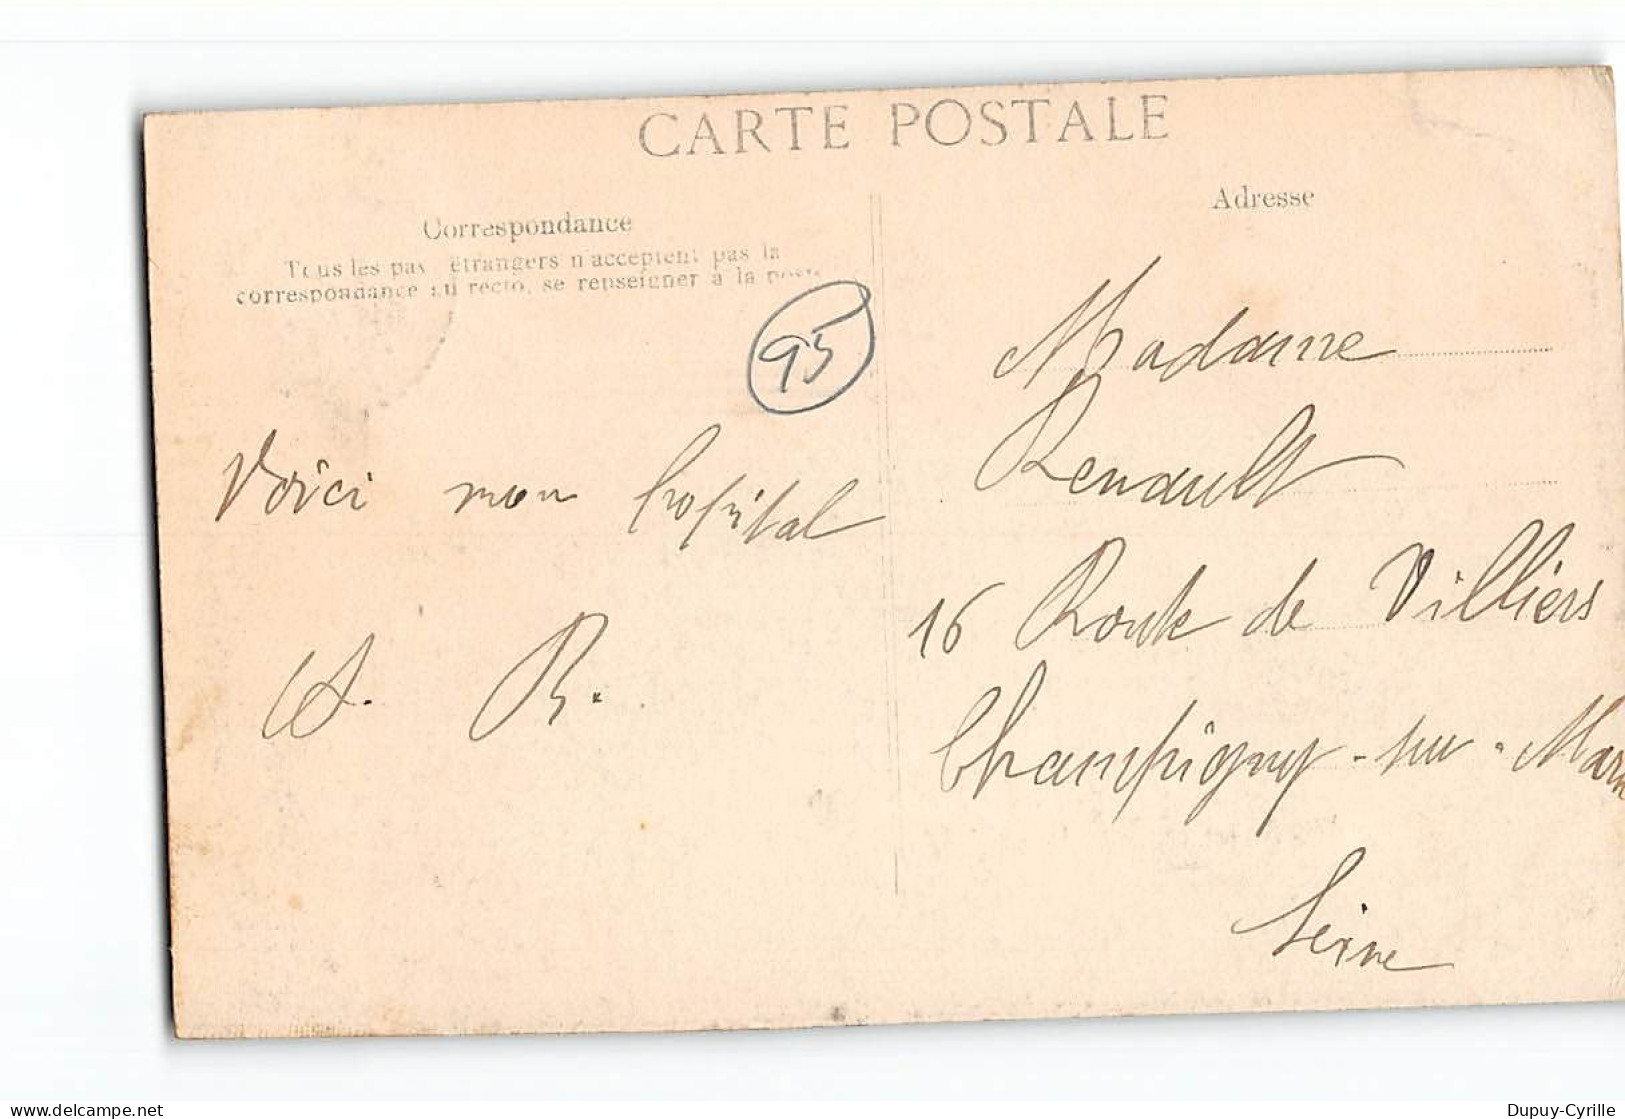 CARTE POSTALE
Correspondance
Tous les pays étrangers n'acceptent pas la
correspondance au recto, se renseigner à la poste
Adresse
95
Voici mon hopital
A. R.
Madame
Renault
16 Route de Villiers
Champigny-sur-Marne
Seine
delcampe.net
Dupuy-Cyrille